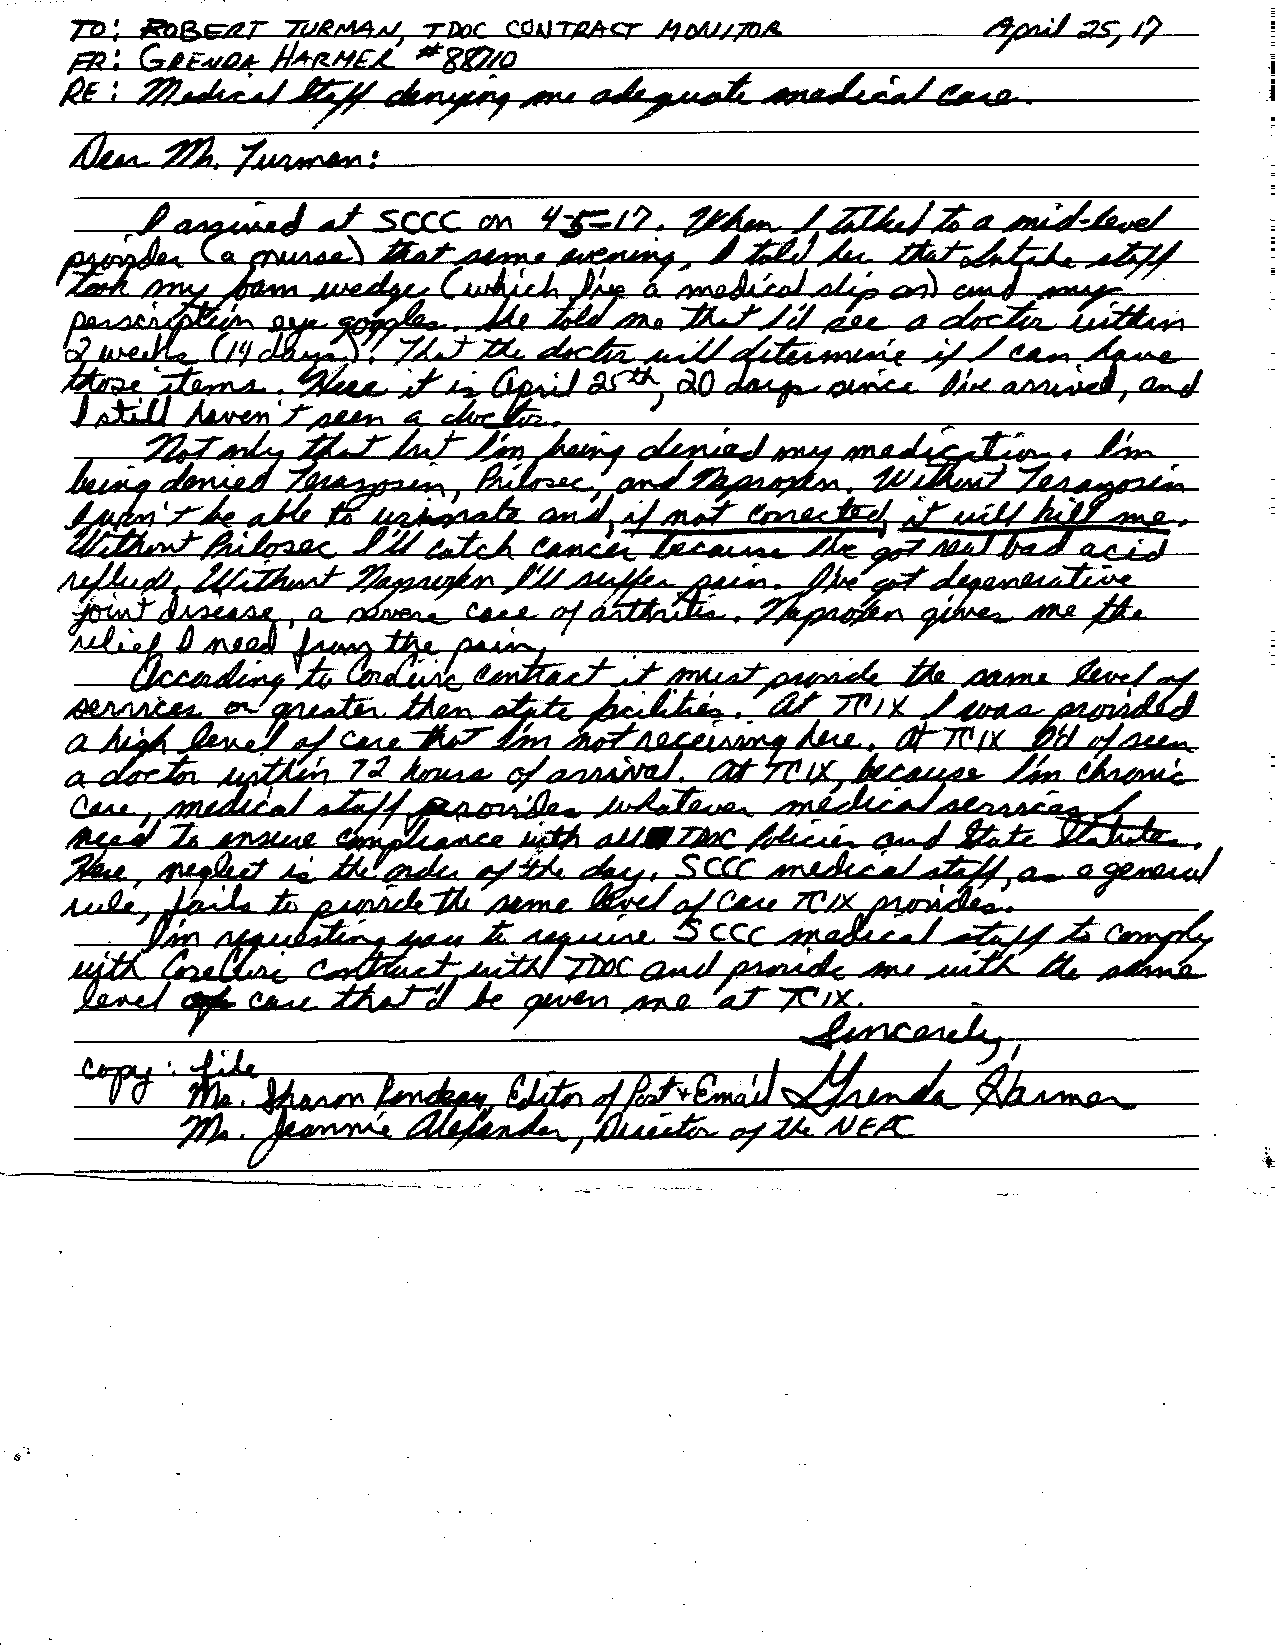 TO: ROBERT TURMAN, TDOC CONTRACT MONITOR April 25, 17
FR: GRENDA HARMER #88710
RE: Medical Staff denying me adequate medical care.
Dear Mr. Turman:
I arrived at SCCC on 4-5-17. When I talked to a mid-level
provider (a nurse) that same evening, I told her that Intake staff
took my foam wedge (which I've a medical slip on) and my
perscription eye goggles. She told me that I'd see a doctor within
2 weeks (14 days). That the doctor will determine if I can have
those items. Here it is April 25th, 20 days since I've arrived, and
I still haven't seen a doctor.
Not only that but I'm being denied my medications. I'm
being denied Terazosin, Prilosec, and Naproxen. Without Terazosin
I won't be able to urinate and, if not corrected, it will kill me.
Without Prilosec I'll catch cancer because I've got real bad acid
reflux. Without Naproxen I'll suffer pain. I've got degenerative
joint disease, a severe case of arthritis. Naproxen gives me the
relief I need from the pain.
According to CoreCivic contract it must provide the same level of
services or greater then state facilities. At TCIX I was provided
a high level of care that I'm not receiving here. At TCIX I'd of seen
a doctor within 72 hours of arrival. At TCIX, because I'm chronic
care, medical staff provides whatever medical services I
need to ensure compliance with all TDOC Policies and State Statutes.
Here, neglect is the order of the day. SCCC medical staff, as a general
rule, fails to provide the same level of care TCIX provides.
I'm requesting you to require SCCC medical staff to comply
with CoreCivic contract with TDOC and provide me with the same
level of care that'd be given me at TCIX.
Sincerely,
copy: file
Ms. Sharon Rondeau, Editor of Post & Email Grenda Harmer
Ms. Jeannie Alexander, Director of the NERC